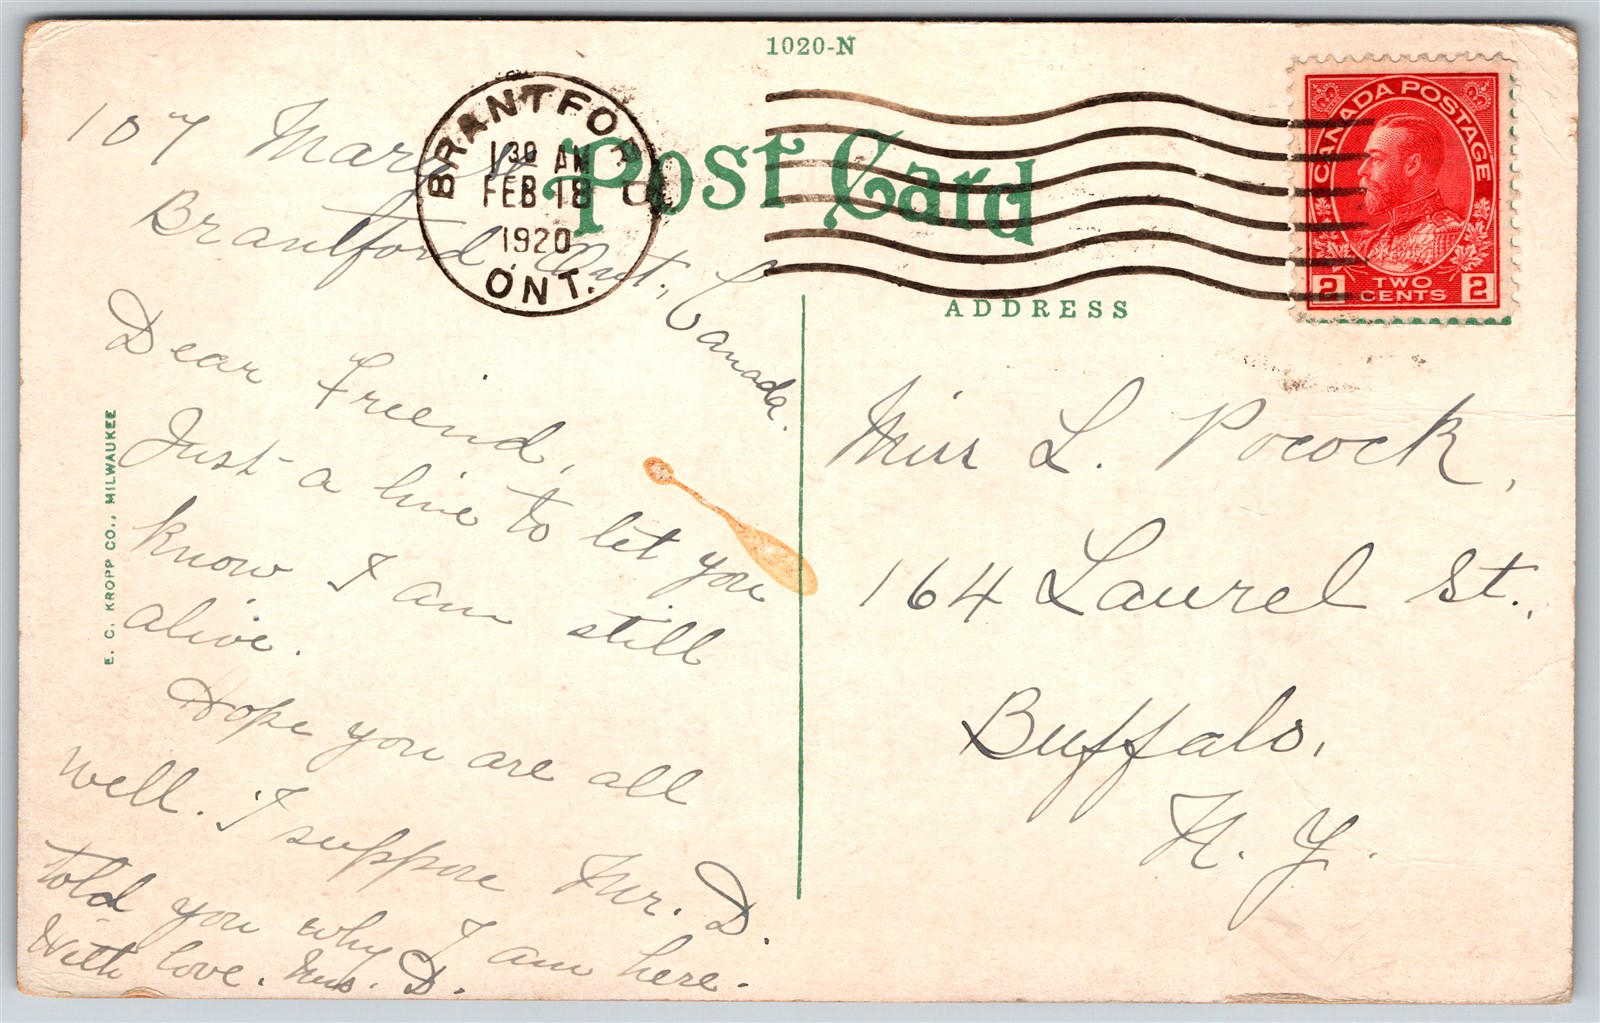 1020-N
CANADA POSTAGE
2 TWO CENTS 2
BRANTFORD
1 30 AM
FEB 18
1920
ONT.
Post Card
ADDRESS
E. C. KROPP CO., MILWAUKEE
107 Market
Brantford Ont., Canada.
Dear Friend,
Just a line to let you
know I am still
alive.
Hope you are all
well. I suppose Mr. D.
told you why I am here.
With love. Mrs. D.
Miss L. Pocock,
164 Laurel St.,
Buffalo,
N. Y.